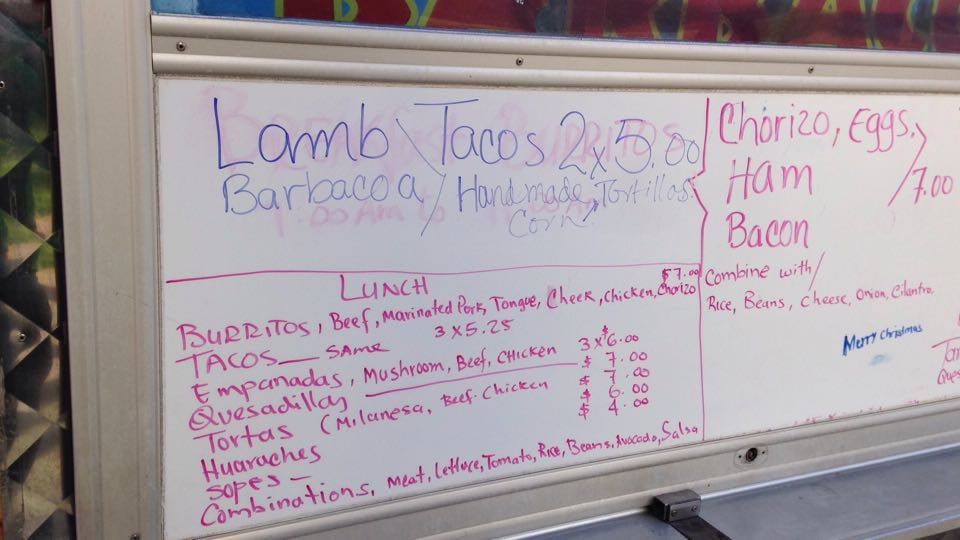 Lamb Tacos 2x5.00
Barbacoa / Handmade Tortillas
Corn
Chorizo, Eggs,
Ham
/ 7.00
Bacon
Combine with /
Rice, Beans, Cheese, Onion, Cilantro.
Merry Christmas
LUNCH
$7.00
BURRITOS, Beef, Marinated Pork, Tongue, Cheek, Chicken, Chorizo
TACOS — SAME 3 x 5.25
Empanadas, Mushroom, Beef, CHICKEN 3 x $6.00
Quesadillas $ 7.00
Tortas (Milanesa, Beef. Chicken $ 7.00
Huaraches $ 6.00
Sopes — $ 4.00
Combinations, Meat, Lettuce, Tomato, Rice, Beans, Avocado, Salsa